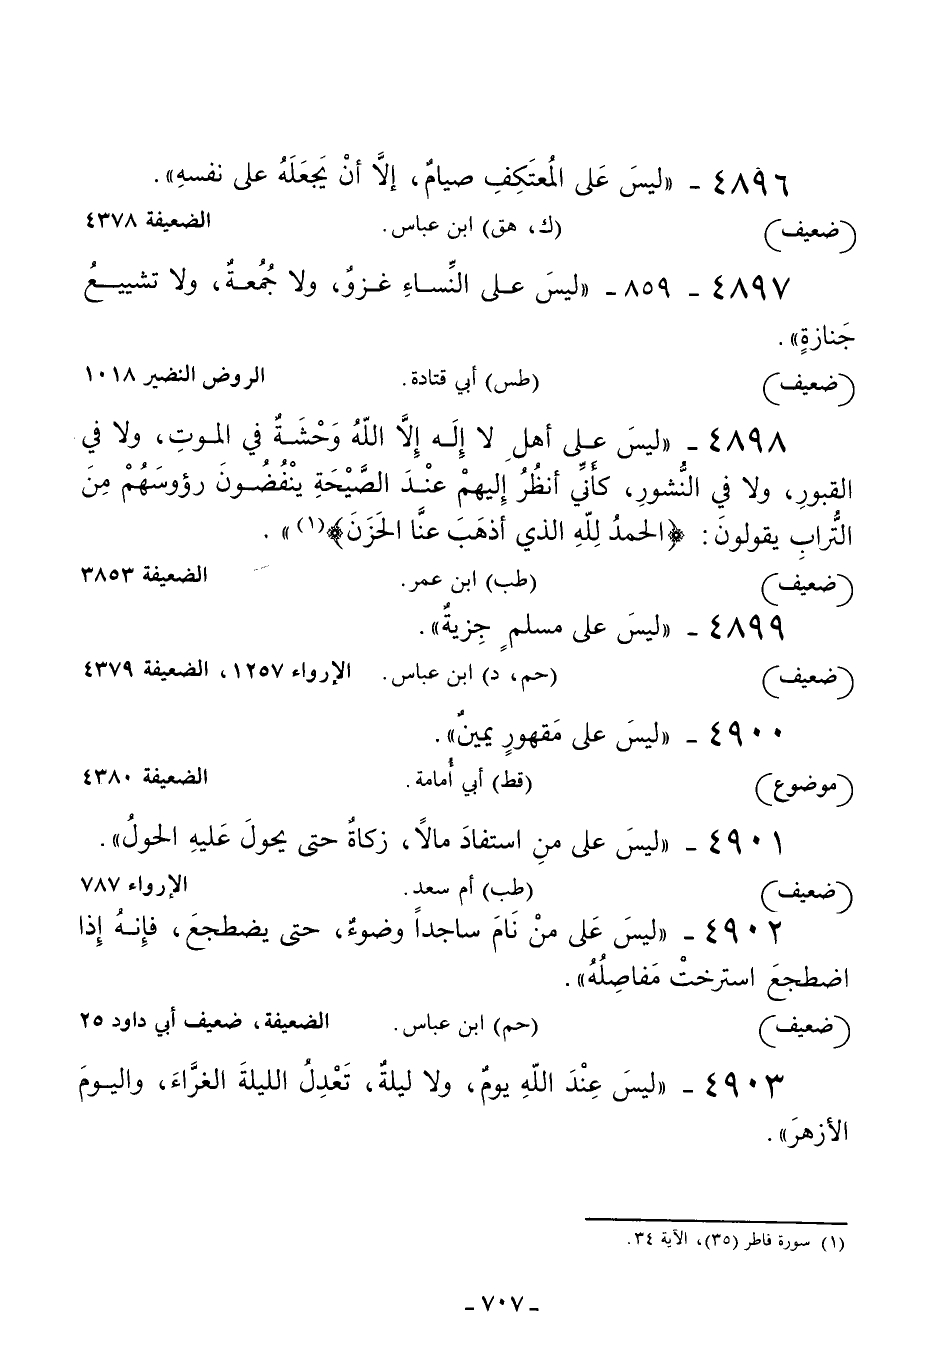 ٤٨٩٦ - «ليسَ عَلى المُعتَكِفِ صيامٌ، إلَّا أنْ يَجعَلَهُ على نفسهِ».
(ضعيف) (ك، هق) ابن عباس. الضعيفة ٤٣٧٨
٤٨٩٧ - ٨٥٩ - «ليسَ على النِّساءِ غزوٌ، ولا جُمُعةٌ، ولا تشييعُ
جَنازةٍ».
(ضعيف) (طس) أبي قتادة. الروض النضير ١٠١٨
٤٨٩٨ - «ليسَ على أهلِ لا إِلَه إِلَّا اللّهُ وَحْشَةٌ في الموتِ، ولا في
القبورِ، ولا في النُّشورِ، كأَنِّي أنظُرُ إِليهمْ عنْدَ الصَّيْحَةِ ينْفُضُونَ رؤوسَهُمْ مِنَ
التُّرابِ يقولونَ: ﴿الحمدُ لِلّهِ الذي أذهَبَ عنَّا الحَزَنَ﴾(١)».
(ضعيف) (طب) ابن عمر. الضعيفة ٣٨٥٣
٤٨٩٩ - «ليسَ على مسلمٍ جِزيةٌ».
(ضعيف) (حم، د) ابن عباس. الإرواء ١٢٥٧، الضعيفة ٤٣٧٩
٤٩٠٠ - «ليسَ على مَقهورٍ يمينٌ».
(موضوع) (قط) أبي أُمامة. الضعيفة ٤٣٨٠
٤٩٠١ - «ليسَ على منِ استفادَ مالاً، زكاةٌ حتى يحولَ عَليهِ الحولُ».
(ضعيف) (طب) أم سعد. الإرواء ٧٨٧
٤٩٠٢ - «ليسَ عَلى منْ نَامَ ساجداً وضوءٌ، حتى يضطجعَ، فإنهُ إذا
اضطجعَ استرختْ مَفاصِلُهُ».
(ضعيف) (حم) ابن عباس. الضعيفة، ضعيف أبي داود ٢٥
٤٩٠٣ - «ليسَ عِنْدَ اللّهِ يومٌ، ولا ليلةٌ، تَعْدِلُ الليلةَ الغرَّاءَ، واليومَ
الأزهرَ».
(١) سورة فاطر (٣٥)، الآية ٣٤.
- ٧٠٧ -